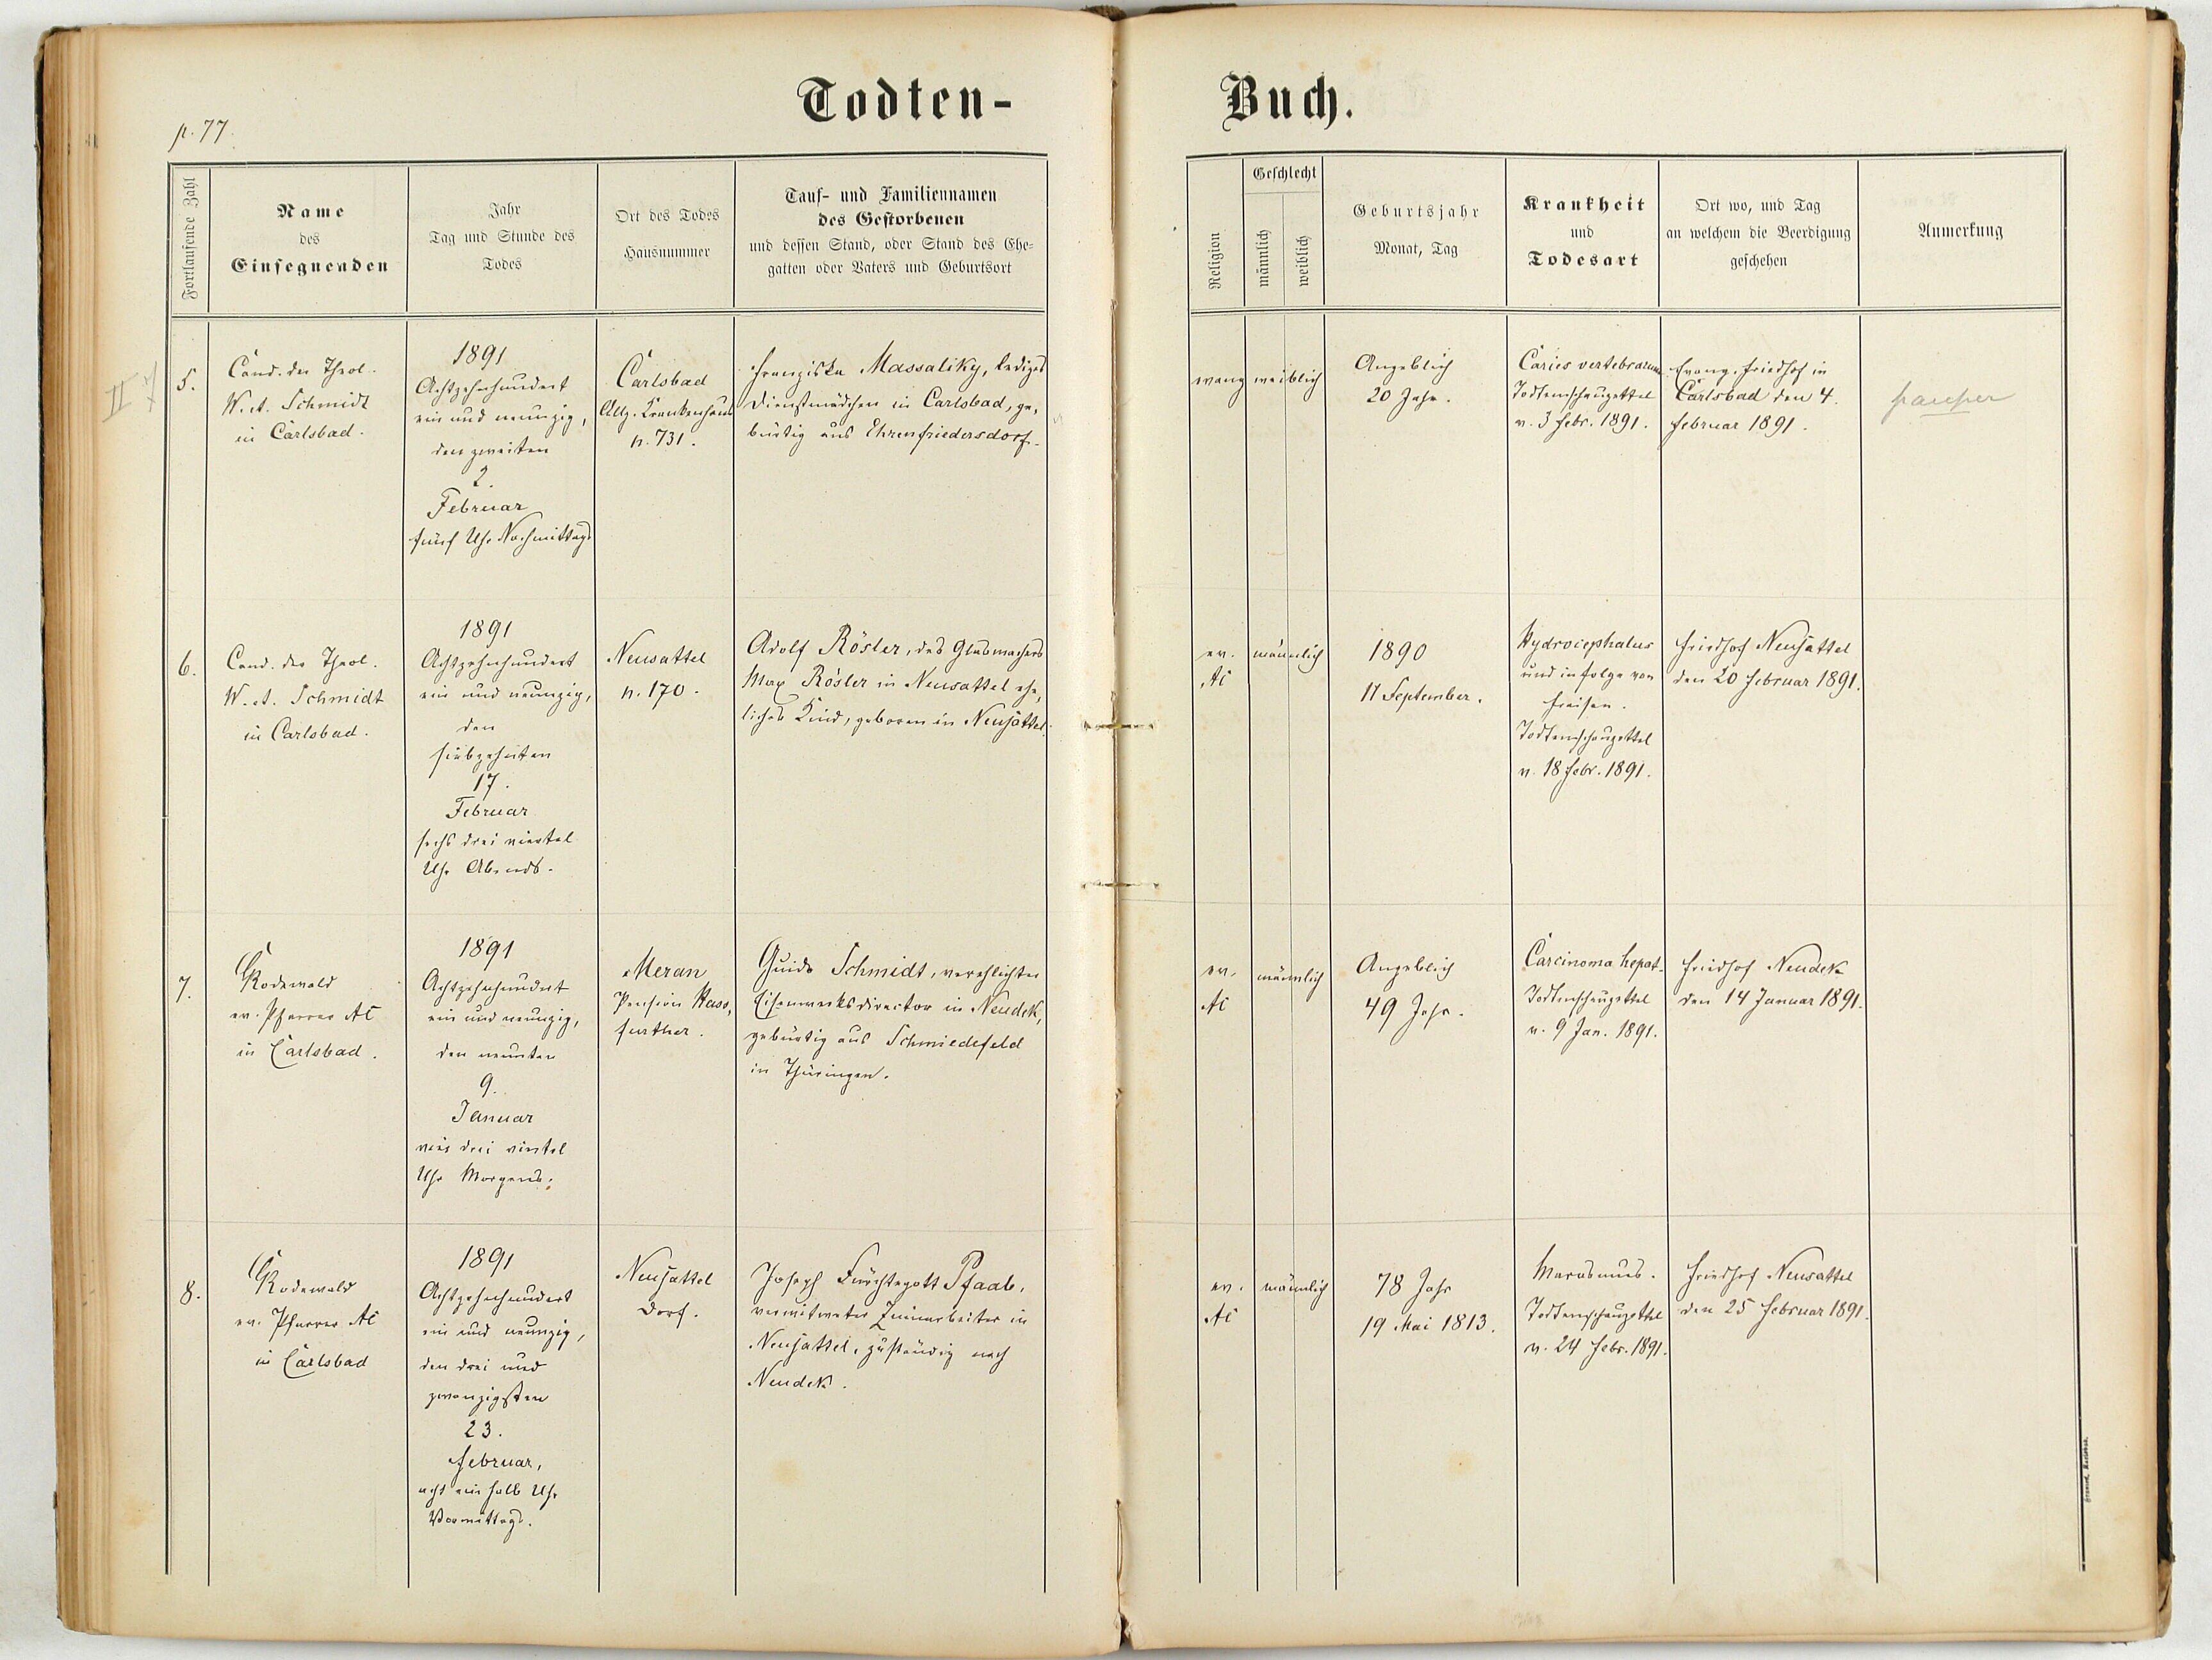 Todten-
Buch.
p. 77.
Fortlaufende Zahl
Name
des
Einsegnenden
Jahr
Tag und Stunde des
Todes
Ort des Todes
Hausnummer
Tauf- und Familiennamen
des Gestorbenen
und dessen Stand, oder Stand des Ehe-
gatten oder Vaters und Geburtsort
Religion
Geschlecht
männlich
weiblich
Geburtsjahr
Monat, Tag
Krankheit
und
Todesart
Ort wo, und Tag
an welchem die Beerdigung
geschehen
Anmerkung
II
5.
Cand. der Theol.
W. et. Schmidt
in Carlsbad.
1891
Achtzehnhundert
ein und neunzig,
den zweiten
2.
Februar
fünf Uhr Nachmittags
Carlsbad
Allg. Krankenhaus
n. 731.
Franziska Massaliky, lediges
Dienstmädchen in Carlsbad, ge-
bürtig aus Ehrenfriedersdorf.
evang
weiblich
Angeblich
20 Jahr.
Caries vertebrarum
Todtenschauzettel
v. 3 Febr. 1891.
Evang. Friedhof in
Carlsbad den 4.
Februar 1891.
pauper
6.
Cand. der Theol.
W. et. Schmidt
in Carlsbad.
1891
Achtzehnhundert
ein und neunzig,
den
siebzehnten
17.
Februar
sechs drei viertel
Uhr Abends.
Neusattel
n. 170.
Adolf Rösler, des Glasmachers
Max Rösler in Neusattel ehe-
liches Kind, geboren in Neusattel.
ev.
AC
männlich
1890
17 September.
Hydrocephalus
und in folge von
Fraisen.
Todtenschauzettel
v. 18 Febr. 1891.
Friedhof Neusattel
den 20 Februar 1891.
7.
Rodewald
ev. Pfarrer AC
in Carlsbad.
1891
Achtzehnhundert
ein und neunzig,
den neunten
9.
Januar
vier drei viertel
Uhr Morgens.
Meran
Pension Hass-
further.
Guido Schmidt, verehlichter
Eisenwerksdirector in Neudek,
gebürtig aus Schmiedefeld
in Thüringen.
ev.
AC
männlich
Angeblich
49 Jahr.
Carcinoma hepat.
Todtenschauzettel
v. 9 Jan. 1891.
Friedhof Neudek
den 14 Januar 1891.
8.
Rodewald
ev. Pfarrer AC
in Carlsbad
1891
Achtzehnhundert
ein und neunzig,
den drei und
zwanzigsten
23.
Februar,
acht ein halb Uhr
Vormittags.
Neusattel
Dorf.
Joseph Fürchtegott Pfaab,
verwitweter Zinnarbeiter in
Neusattel, zuständig nach
Neudek.
ev.
AC
männlich
78 Jahr
19 Mai 1813.
Marasmus.
Todtenschauzettel
v. 24 Febr. 1891.
Friedhof Neusattel
den 25 Februar 1891.